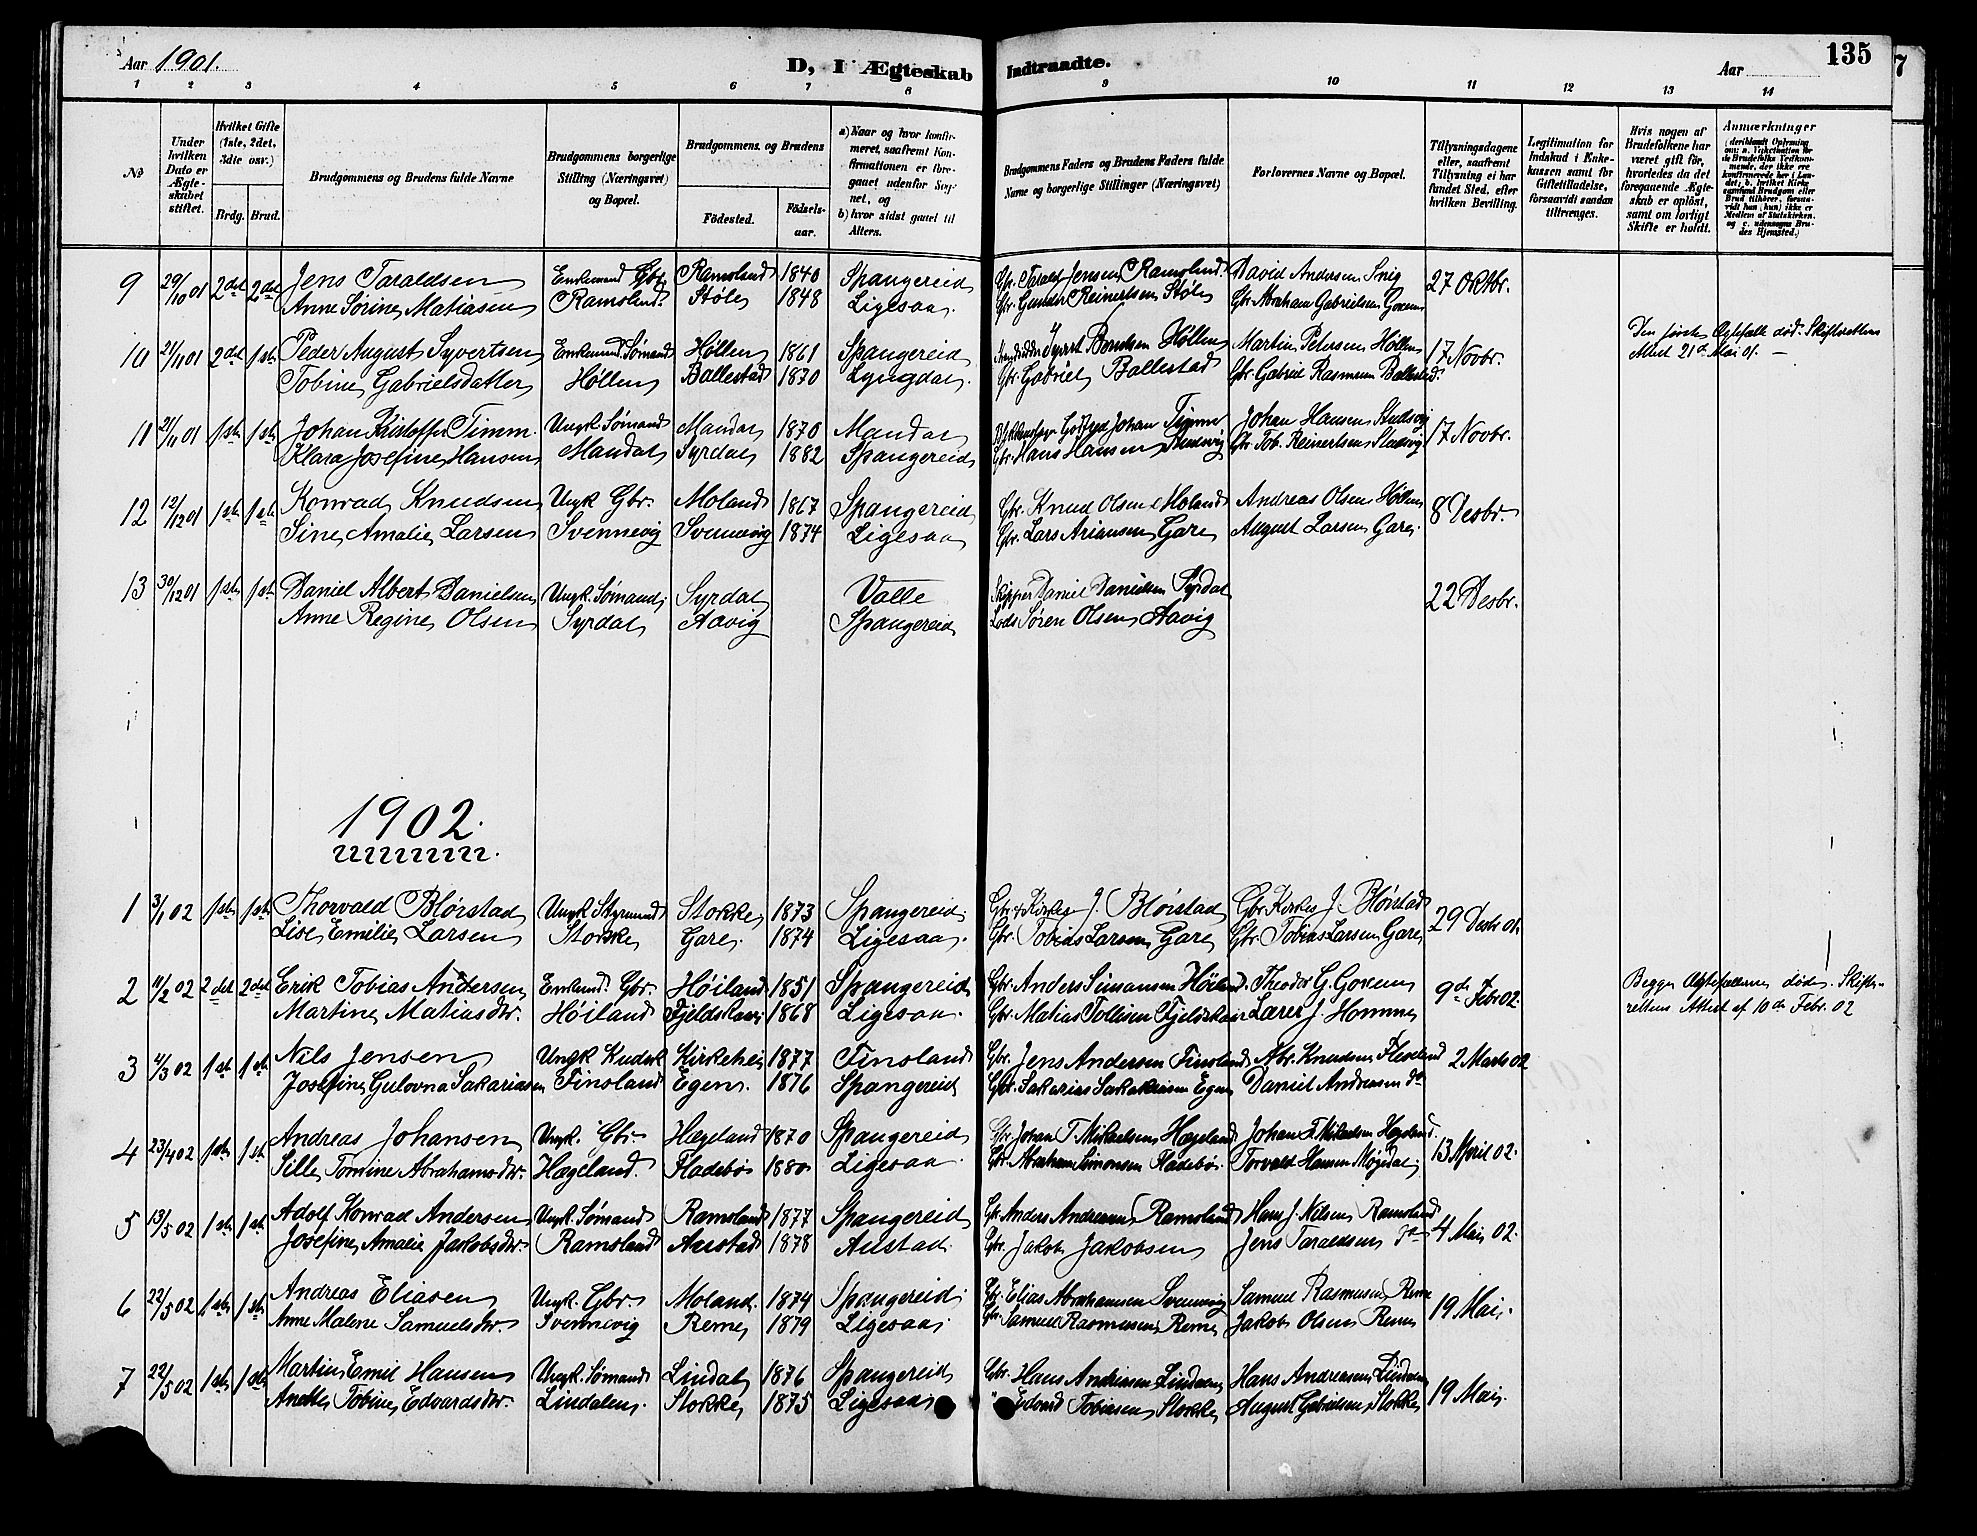 Aar 1901.
D, I Ægteskab
Indtraadte.
Aar
135
7
1 2 3 4 5 6 7 8 9 10 11 12 13 14
No
Under hvilken Dato er Ægte-skabet stiftet.
Hvilket Gifte (1ste, 2det, 3die osv.)
Brdg. Brud.
Brudgommens og Brudens fulde Navne
Brudgommens borgerlige Stilling (Næringsvei) og Bopæl.
Brudgommens og Brudens
Födested.
Födsels-aar.
a) Naar og hvor konfir-meret, saafremt Kon-firmationen er fore-gaaet udenfor Sog-net, og
b) hvor sidst gaaet til Alters.
Brudgommens Faders og Brudens Faders fulde Navne og borgerlige Stillinger (Næringsvei)
Forlovernes Navne og Bopæl.
Tillysningsdagene eller, saafremt Tillysning ei har fundet Sted, efter hvilken Bevilling.
Legitimation for Indskud i Enke-kassen samt for Giftetilladelse, forsaavidt saadan tiltrænges.
Hvis nogen af Brudefolkene har været gift før, hvorledes da det foregaaende Ægte-skab er opløst, samt om lovligt Skifte er holdt.
Anmærkninger
9 29/10 01 2det 2det Jens Taraldsen Enkemand Gbr. Ramsland 1840 Spangereid Gbr. Tarald Jensen Ramsland. David Andersen Snig 27 Oktbr.
Anne Sørine Matiasen Ramsland Støle 1848 Ligesaa. Gbr. Gunder Reinertsen Støle Gbr. Abraham Gabrielsen Goven
10 21/11 01 2det 1ste Peder August Syvertsen Enkemand Sømand Høllen 1861 Spangereid Syvert Berntsen Høllen Martin Petersen Høllen 17 Novbr. Den første Ægtefælle død. Skifterettens
Tobine Gabrielsdatter Høllen Ballestad 1870 Lyngdal. Gbr. Gabriel Ballestad Gbr. Gabriel Rasmussen Ballestad. Attest 21de Mai 01. —
11 21/11 01 1ste 1ste Johan Kristoffer Timm. Ungk. Sømand Mandal 1870 Mandal Johan Timm Johan Hansen Studsvig 17 Novbr.
Klara Josefine Hansen Mandal Syrdal 1882 Spangereid Gbr. Hans Hansen Studsvig Gbr. Tob. Reinertsen Studsvig
12 12/12 01 1ste 1ste Konrad Knudsen Ungk. Gbr. Moland 1867 Spangereid Gbr. Knud Olsen Moland Andreas Olsen Høllen 8 Desbr.
Sine Amalie Larsen Svennevig Svennevig 1874 Ligesaa Gbr. Lars Ariansen Gare August Larsen Gare.
13 30/12 01 1ste 1ste Daniel Albert Danielsen Ungk. Sømand Syrdal Valle Skipper Daniel Danielsen Syrdal 22 Desbr.
Anne Regine Olsen Syrdal Aavig Spangereid Lods Søren Olsen Aavig
1902.
1 3/1 02 1ste 1ste Thorvald Blørstad Ungk. Styrmand Stokke 1873 Spangereid Gbr. & Kirkes. J. Blørstad Gbr Kirkes J. Blørstad 29 Desbr 01.
Lise Emilie Larsen Stokke Gare. 1874 Ligesaa. Gbr. Tobias Larsen Gare Gbr. Tobias Larsen Gare
2 11/2 02 2det 2det Erik Tobias Andersen Enkemd. Gbr. Høiland 1851 Spangereid Gbr. Anders Simonsen Høiland Theodor G. Goven 9de Febr 02. Begge Ægtefællerne døde. Skifte-
Martine Matiasdtr. Høiland Fjeldskaar 1868 Ligesaa. Gbr. Matias Tollisen Fjeldskaar Lærer J. Homme rettens Attest af 10de Febr. 02
3 4/3 02 1ste 1ste Nils Jensen Ungk Kudsk Kirkehei 1877 Finsland Gbr. Jens Andersen Finsland Abr. Knudsen Fleseland 2 Marts 02
Josefine Gulovna Sakariasen Finsland Egen. 1876 Spangereid Gbr. Sakarias Sakariasen Egen Daniel Andreassen do
4 23/4 02 1ste 1ste Andreas Johansen Ungk. Gbr. Hægeland 1870 Spangereid Gbr Johan T. Mikaelsen Hægeland Johan T. Mikaelsen Hægeland. 13 April 02.
Sille Tomine Abrahamsdtr. Hægeland. Fladebø 1880 Ligesaa. Gbr. Abraham Simonsen Fladebø. Torvald Hansen Møgedal
5 13/5 02 1ste 1ste Adolf Konrad Andersen Ungk. Sømand Ramsland 1877 Spangereid Gbr Anders Andreasen Ramsland Hans J. Nilsen Ramsland 4 Mai 02.
Josefine Amalie Jakobsdtr. Ramsland Austad 1878 Austad. Gbr. Jakob Jakobsen Jens Taraldsen do
6 22/5 02 1ste 1ste Andreas Eliasen Ungk. Gbr. Moland. 1874 Spangereid Gbr. Elias Abrahamsen Svennevig Samuel Rasmussen Reme 19 Mai.
Anne Malene Samuelsdtr. Svennevig Reme 1879 Ligesaa. Gbr. Samuel Rasmussen Reme Jakob Olsen Reme
7 22/5 02 1ste 1ste Martin Emil Hansen Ungk. Sømand Lindal 1876 Spangereid Gbr. Hans Andreasen Lindalen Hans Andreasen Lindalen 19 Mai.
Anette Tobine Edvardsdtr. Lindalen Stokke 1875 Ligesaa " Edvard Tobiassen Stokke August Gabrielsen Stokke